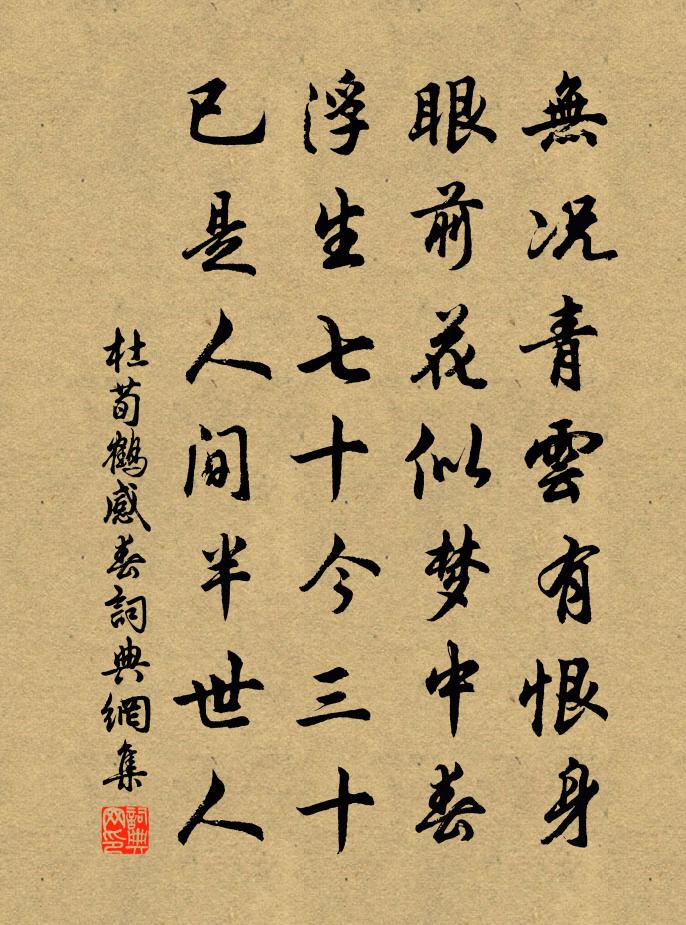 無况青雲有恨身
眼前花似梦中春
浮生七十今三十
已是人间半世人
杜荀鶴感春詞典網集
詞典网印